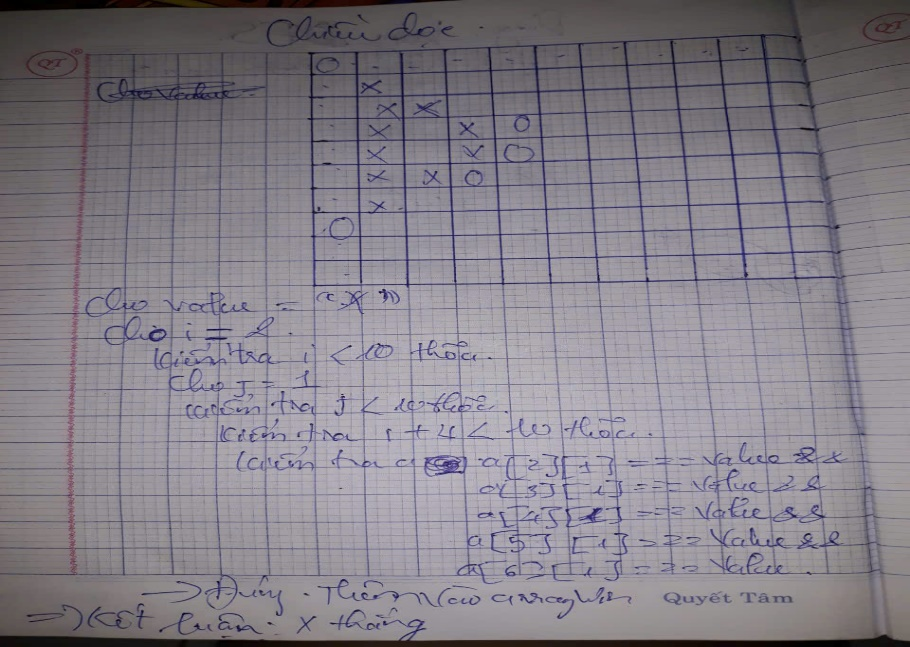 Chiều dọc
QT
QT
Cho value =
O
X
X X
X X O
X X O
X X O
X
O
Cho value = "X"
Cho i = 2.
Kiểm tra i < 10 thỏa.
Cho j = 1
Kiểm tra j < 10 thỏa.
Kiểm tra i + 4 < 10 thỏa.
Kiểm tra a[2][1] === value &&
a[3][1] === value &&
a[4][1] === value &&
a[5][1] === value &&
a[6][1] === value.
→ Đúng. Thêm vào arrayWin
Quyết Tâm
⇒ Kết luận: X thắng